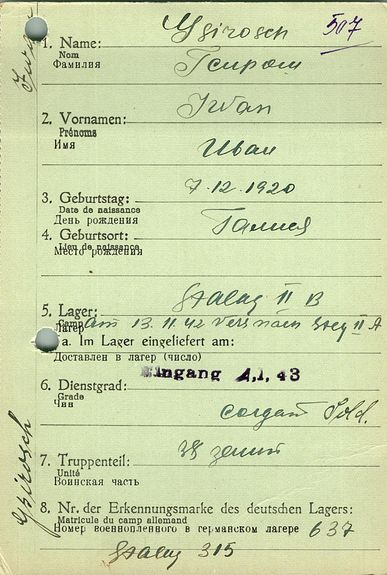 507
1. Name:
Nom
Фамилия
2. Vornamen:
Iwan
Prénoms
Имя
Иван
3. Geburtstag:
7.12.1920
Date de naissance
День рождения
4. Geburtsort:
Lieu de naissance
Место рождения
5. Lager:
Stalag II B
Camp
Лагерь
am 13. 11. 42 Stalag II A
a. Im Lager eingeliefert am:
Доставлен в лагерь (число)
Eingang 1.1.43
6. Dienstgrad:
Grade
Чин
солдат Sold.
7. Truppenteil:
Unité
Воинская часть
8. Nr. der Erkennungsmarke des deutschen Lagers:
Matricule du camp allemand
Номер военнопленного в германском лагере 637
Stalag 315